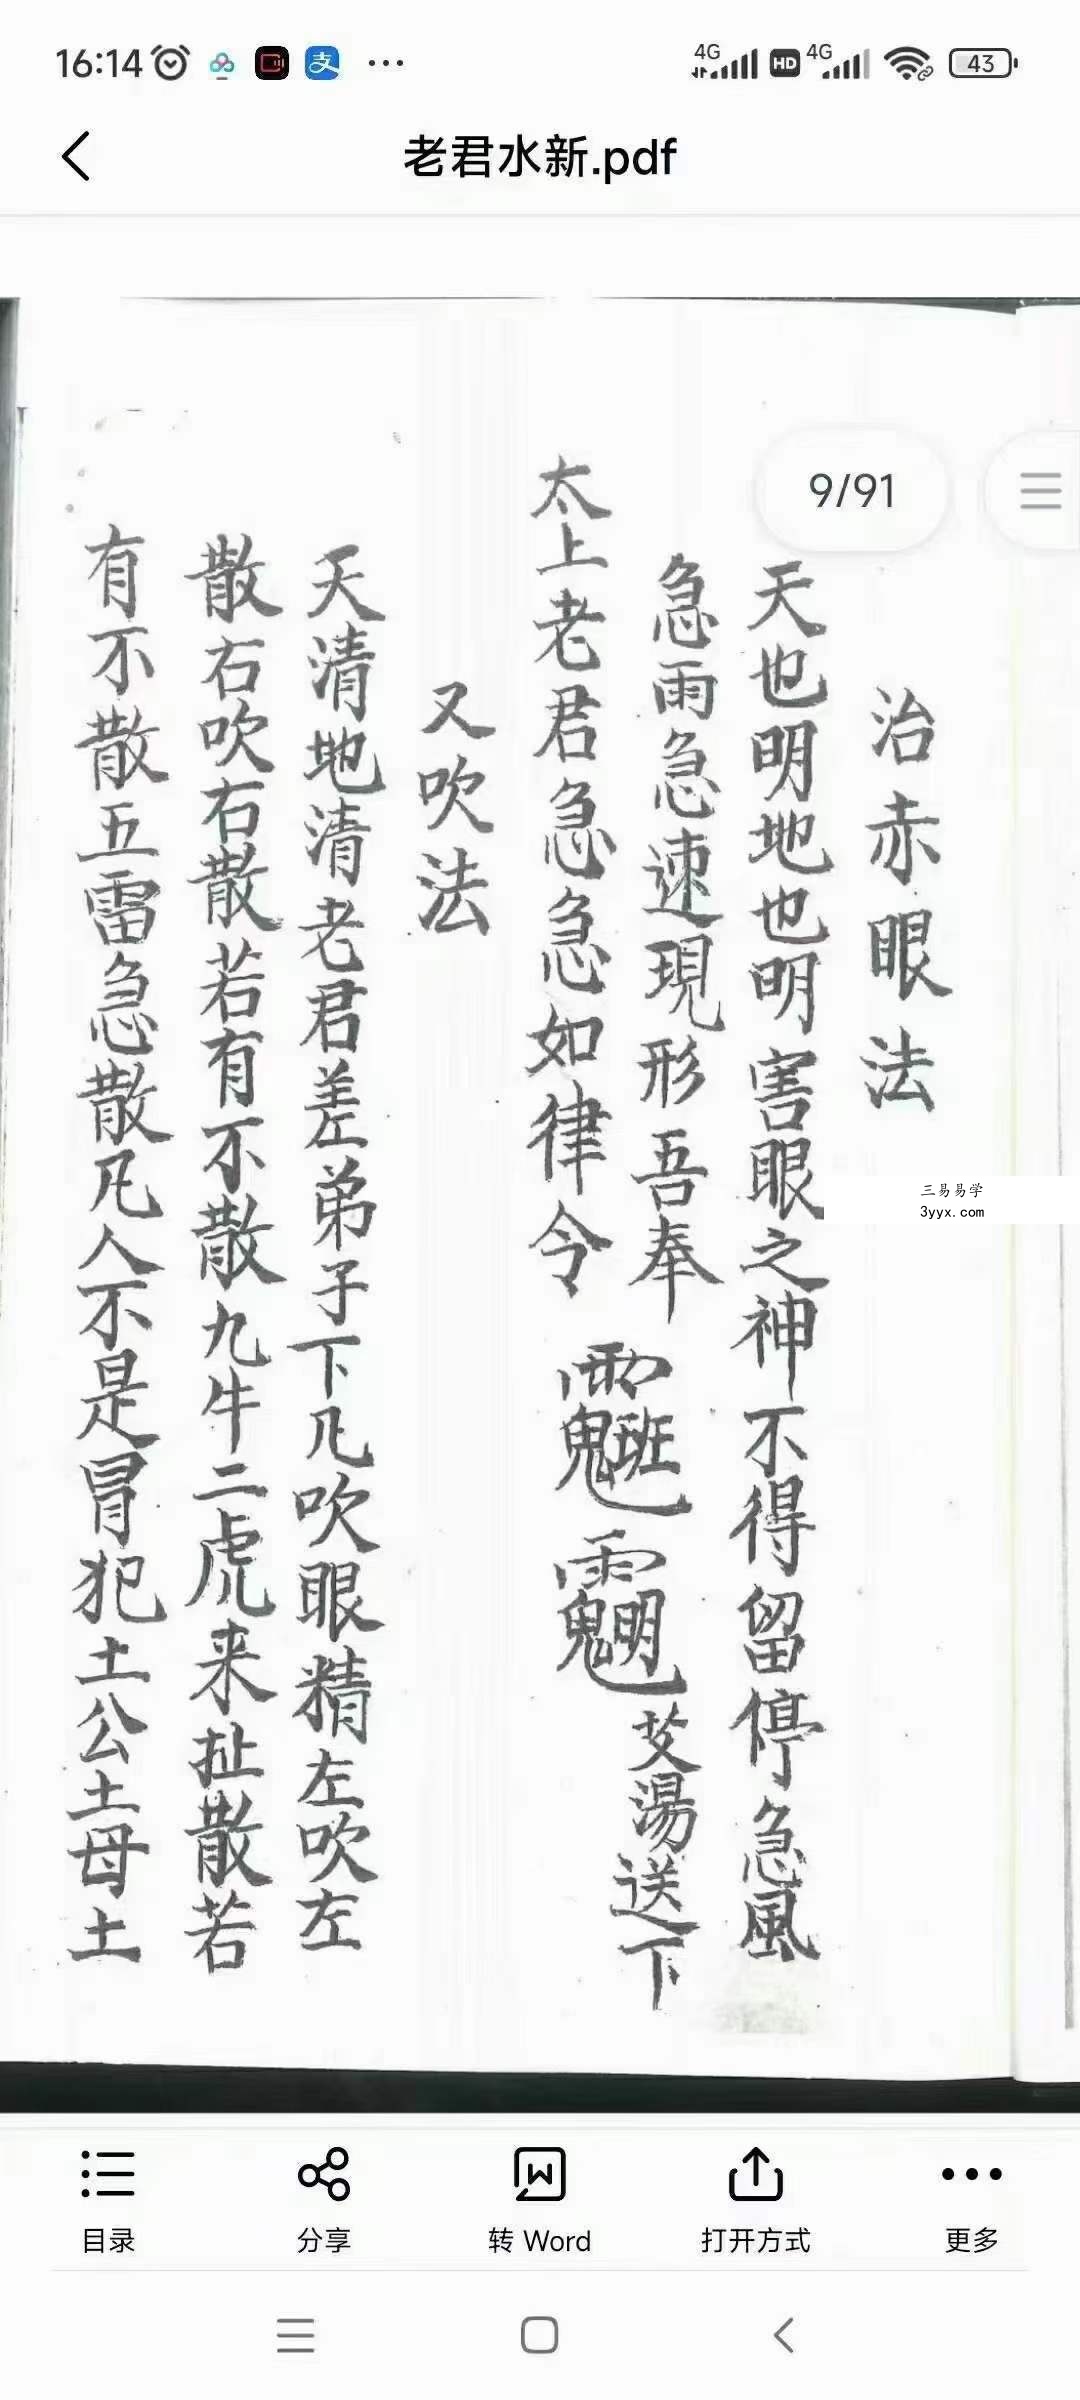 16:14
4G HD 4G 43
老君水新.pdf
9/91
治赤眼法
天也明地也明害眼之神不得留停急風
急雨急速現形吾奉
太上老君急急如律令
艾湯送下
又吹法
天清地清老君差弟子下凡吹眼精左吹左
散右吹右散若有不散九牛二虎来扯散若
有不散五雷急散凡人不是冒犯土公土母土
三易易学
3yyx.com
目录
分享
转 Word
打开方式
更多